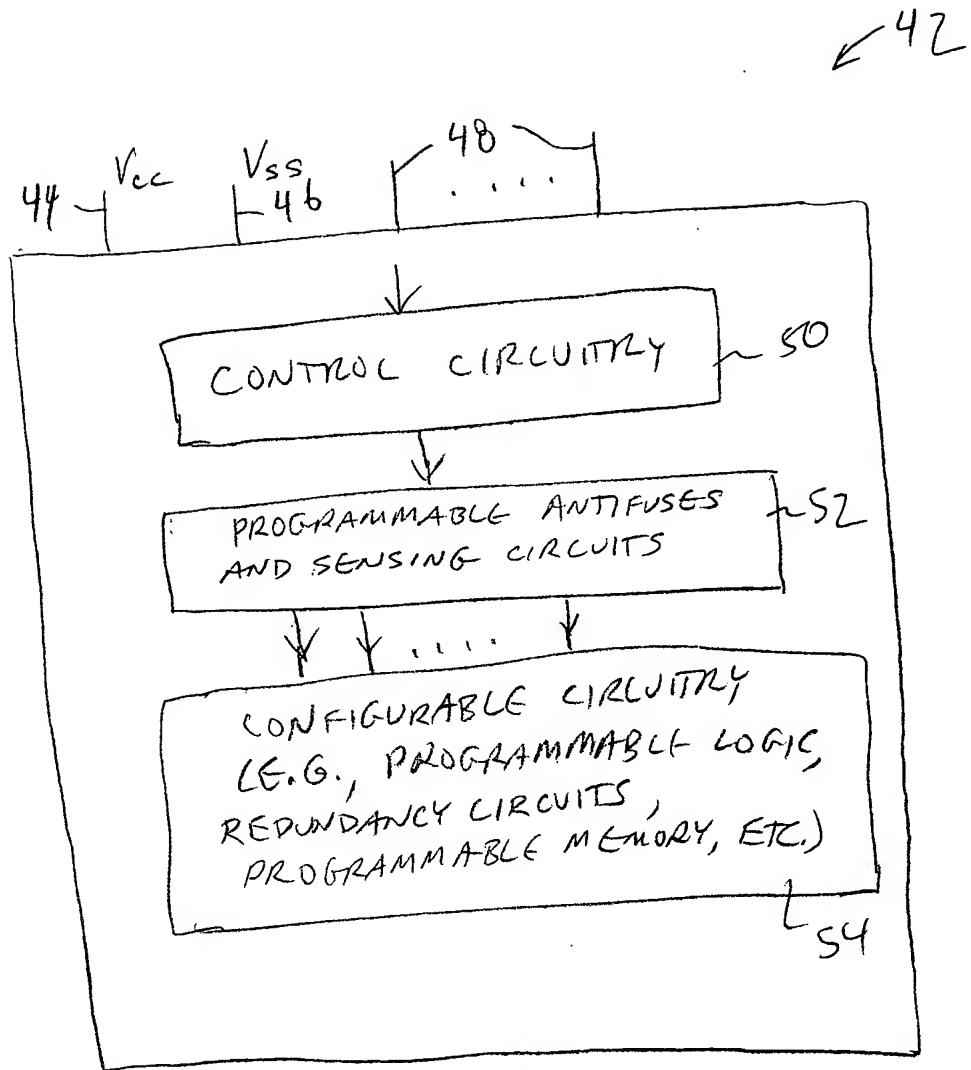 42
48
Vcc
Vss
44
46
....
CONTROL CIRCUITRY
50
PROGRAMMABLE ANTIFUSES
AND SENSING CIRCUITS
52
....
CONFIGURABLE CIRCUITRY
(E.G., PROGRAMMABLE LOGIC,
REDUNDANCY CIRCUITS,
PROGRAMMABLE MEMORY, ETC.)
54